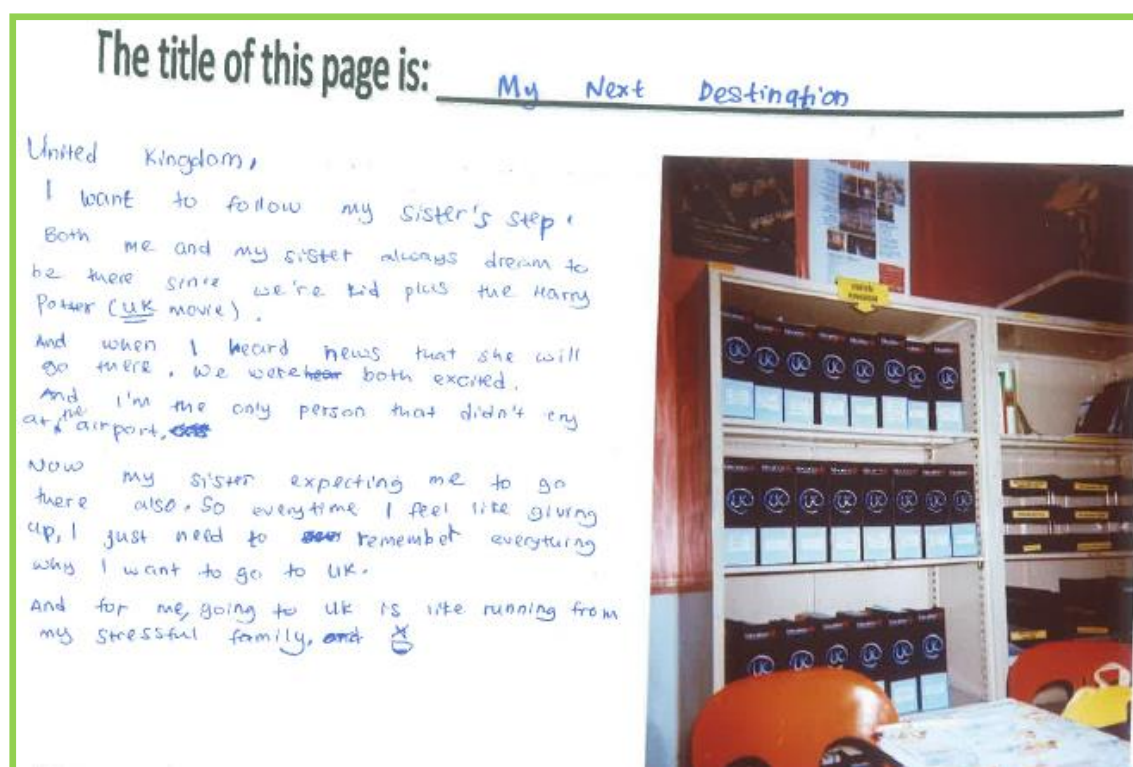 The title of this page is: My Next Destination
United Kingdom,
I want to follow my sister's step.
Both me and my sister always dream to
be there since we're kid plus the Harry
Potter (UK movie).
And when I heard news that she will
go there. We were both excited.
And I'm the only person that didn't cry
at the airport,
Now my sister expecting me to go
there also. So everytime I feel like giving
up, I just need to remember everything
why I want to go to UK.
And for me, going to UK is like running from
my stressful family,
UK UK UK UK UK UK UK UK
UK UK UK UK UK UK UK UK
UK UK UK UK UK UK